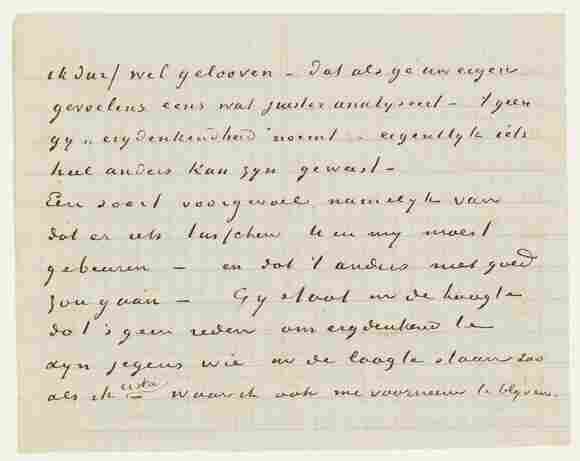 ik durf wel gelooven – dat als ge uw eigen
gevoelens eens wat juister analyseert – 't geen
gy „ergdenkendheid" noemt – eigentlyk iets
heel anders kan zyn geweest –
Een soort voorgevoel namelyk van
dat er iets tusschen U en my moest
gebeuren – en dat 't anders niet goed
zou gaan – Gy staat in de hoogte
do 's geen reden om ergdenkend te
zyn jegens wie in de laagte staan zoo
als ik sta waar ik ook me voorneem te blyven.